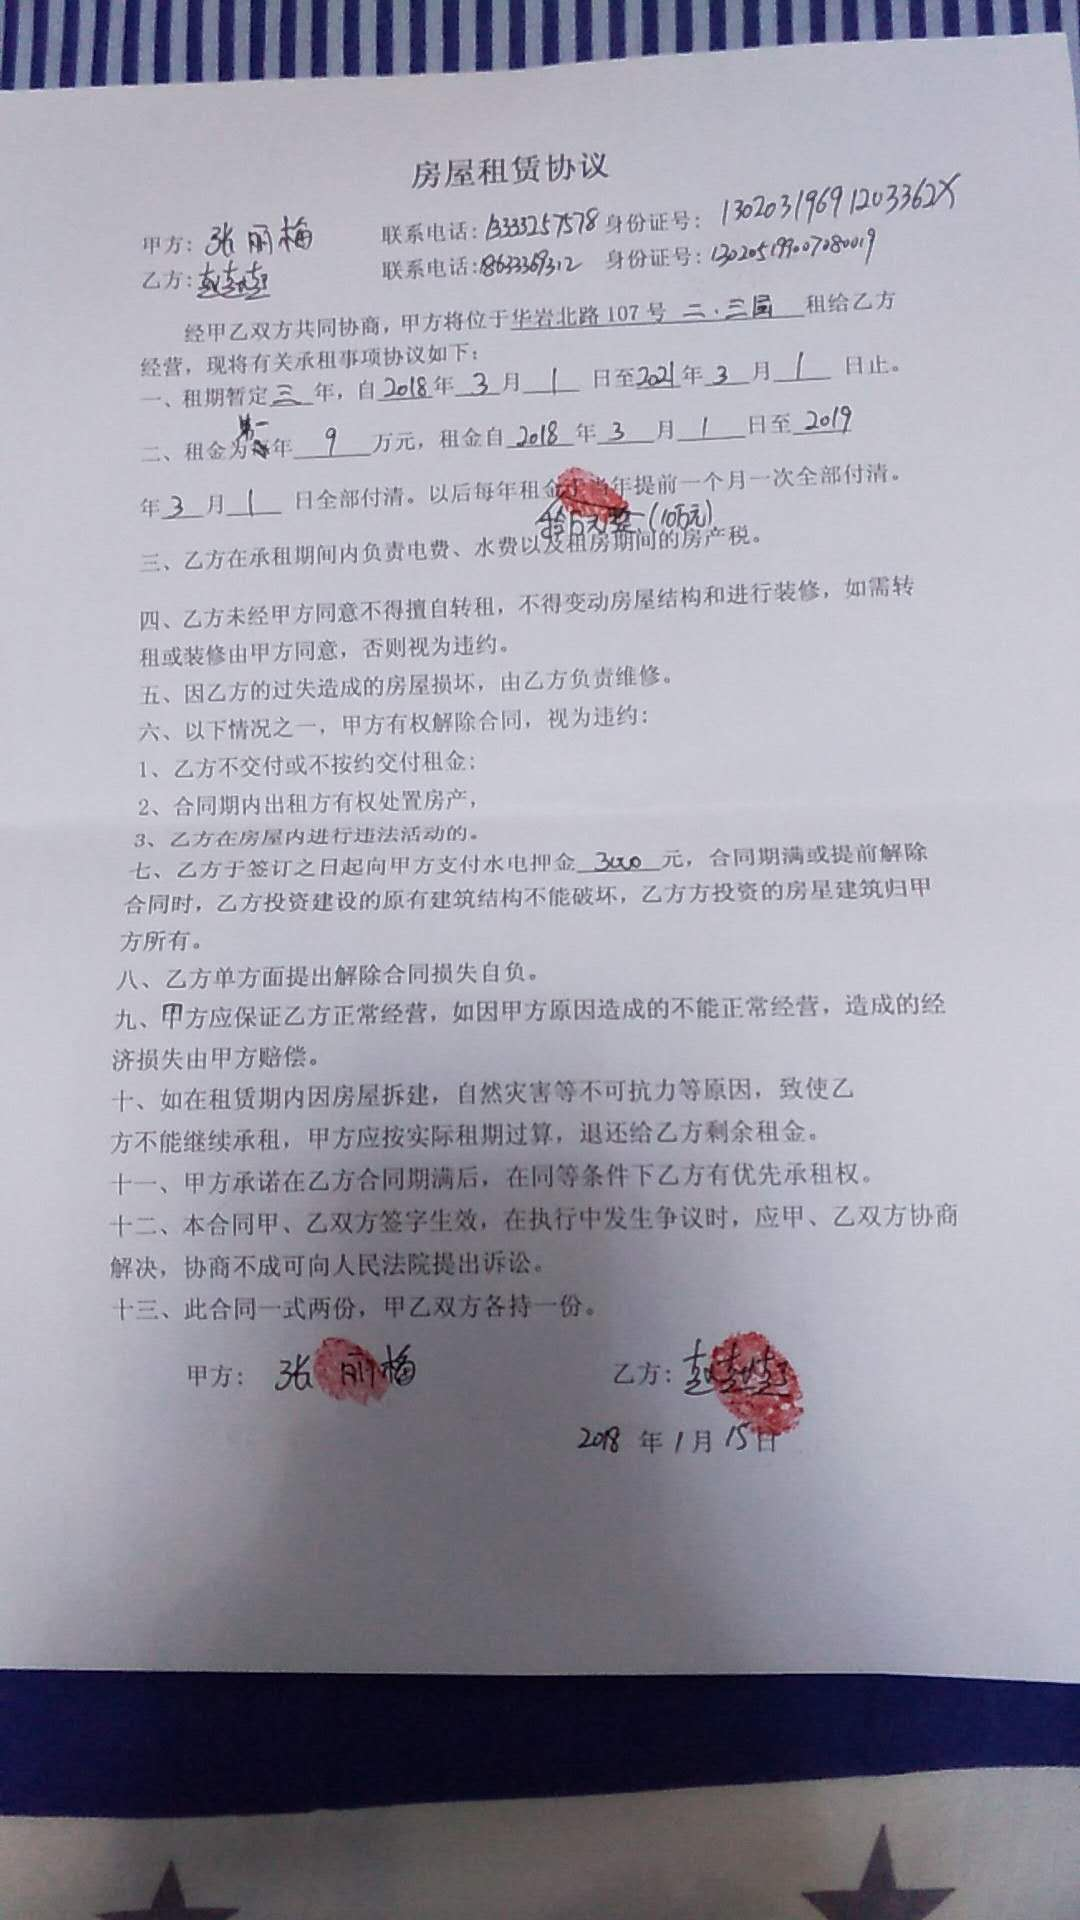 房屋租赁协议
甲方：张丽梅 联系电话：13333257578 身份证号：13020319691203362X
乙方： 联系电话：18633369312 身份证号：130205199007080019
经甲乙双方共同协商，甲方将位于华岩北路 107 号 二.三层 租给乙方
经营，现将有关承租事项协议如下：
一、租期暂定三年，自2018年3月1日至2021年3月1日止。
二、租金为第一年9万元，租金自2018年3月1日至2019
年3月1日全部付清。以后每年租金于当年提前一个月一次全部付清。
拾万元整（10万元）
三、乙方在承租期间内负责电费、水费以及租房期间的房产税。
四、乙方未经甲方同意不得擅自转租，不得变动房屋结构和进行装修，如需转
租或装修由甲方同意，否则视为违约。
五、因乙方的过失造成的房屋损坏，由乙方负责维修。
六、以下情况之一，甲方有权解除合同，视为违约：
1、乙方不交付或不按约交付租金；
2、合同期内出租方有权处置房产，
3、乙方在房屋内进行违法活动的。
七、乙方于签订之日起向甲方支付水电押金3000元，合同期满或提前解除
合同时，乙方投资建设的原有建筑结构不能破坏，乙方方投资的房星建筑归甲
方所有。
八、乙方单方面提出解除合同损失自负。
九、甲方应保证乙方正常经营，如因甲方原因造成的不能正常经营，造成的经
济损失由甲方赔偿。
十、如在租赁期内因房屋拆建，自然灾害等不可抗力等原因，致使乙
方不能继续承租，甲方应按实际租期过算，退还给乙方剩余租金。
十一、甲方承诺在乙方合同期满后，在同等条件下乙方有优先承租权。
十二、本合同甲、乙双方签字生效，在执行中发生争议时，应甲、乙双方协商
解决，协商不成可向人民法院提出诉讼。
十三、此合同一式两份，甲乙双方各持一份。
甲方：张丽梅 乙方：
2018年1月15日